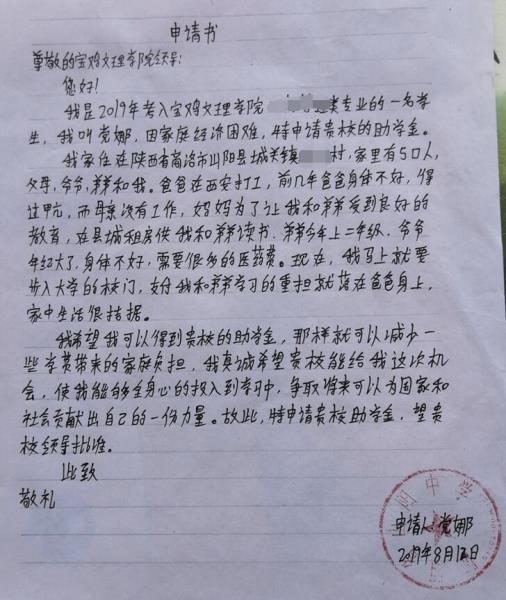 申请书
尊敬的宝鸡文理学院领导:
您好!
我是2019年考入宝鸡文理学院类专业的一名学
生,我叫党娜,因家庭经济困难,特申请贵校的助学金。
我家住在陕西省商洛市山阳县城关镇村,家里有5口人,
父母,爷爷,弟弟和我。爸爸在西安打工,前几年爸爸身体不好,得
过甲亢,而母亲没有工作,妈妈为了让我和弟弟受到良好的
教育,在县城租房供我和弟弟读书.弟弟今年上二年级.爷爷
年纪大了,身体不好,需要很多的医药费。现在,我马上就要
步入大学的校门,支付我和弟弟学习的重担就落在爸爸身上,
家中生活很拮据。
我希望我可以得到贵校的助学金,那样就可以减少一
些学费带来的家庭负担.我真诚希望贵校能给我这次机
会,使我能够全身心的投入到学习中,争取将来可以为国家和
社会贡献出自己的一份力量。故此,特申请贵校助学金,望贵
校领导批准。
此致
敬礼
申请人:党娜
2019年8月12日